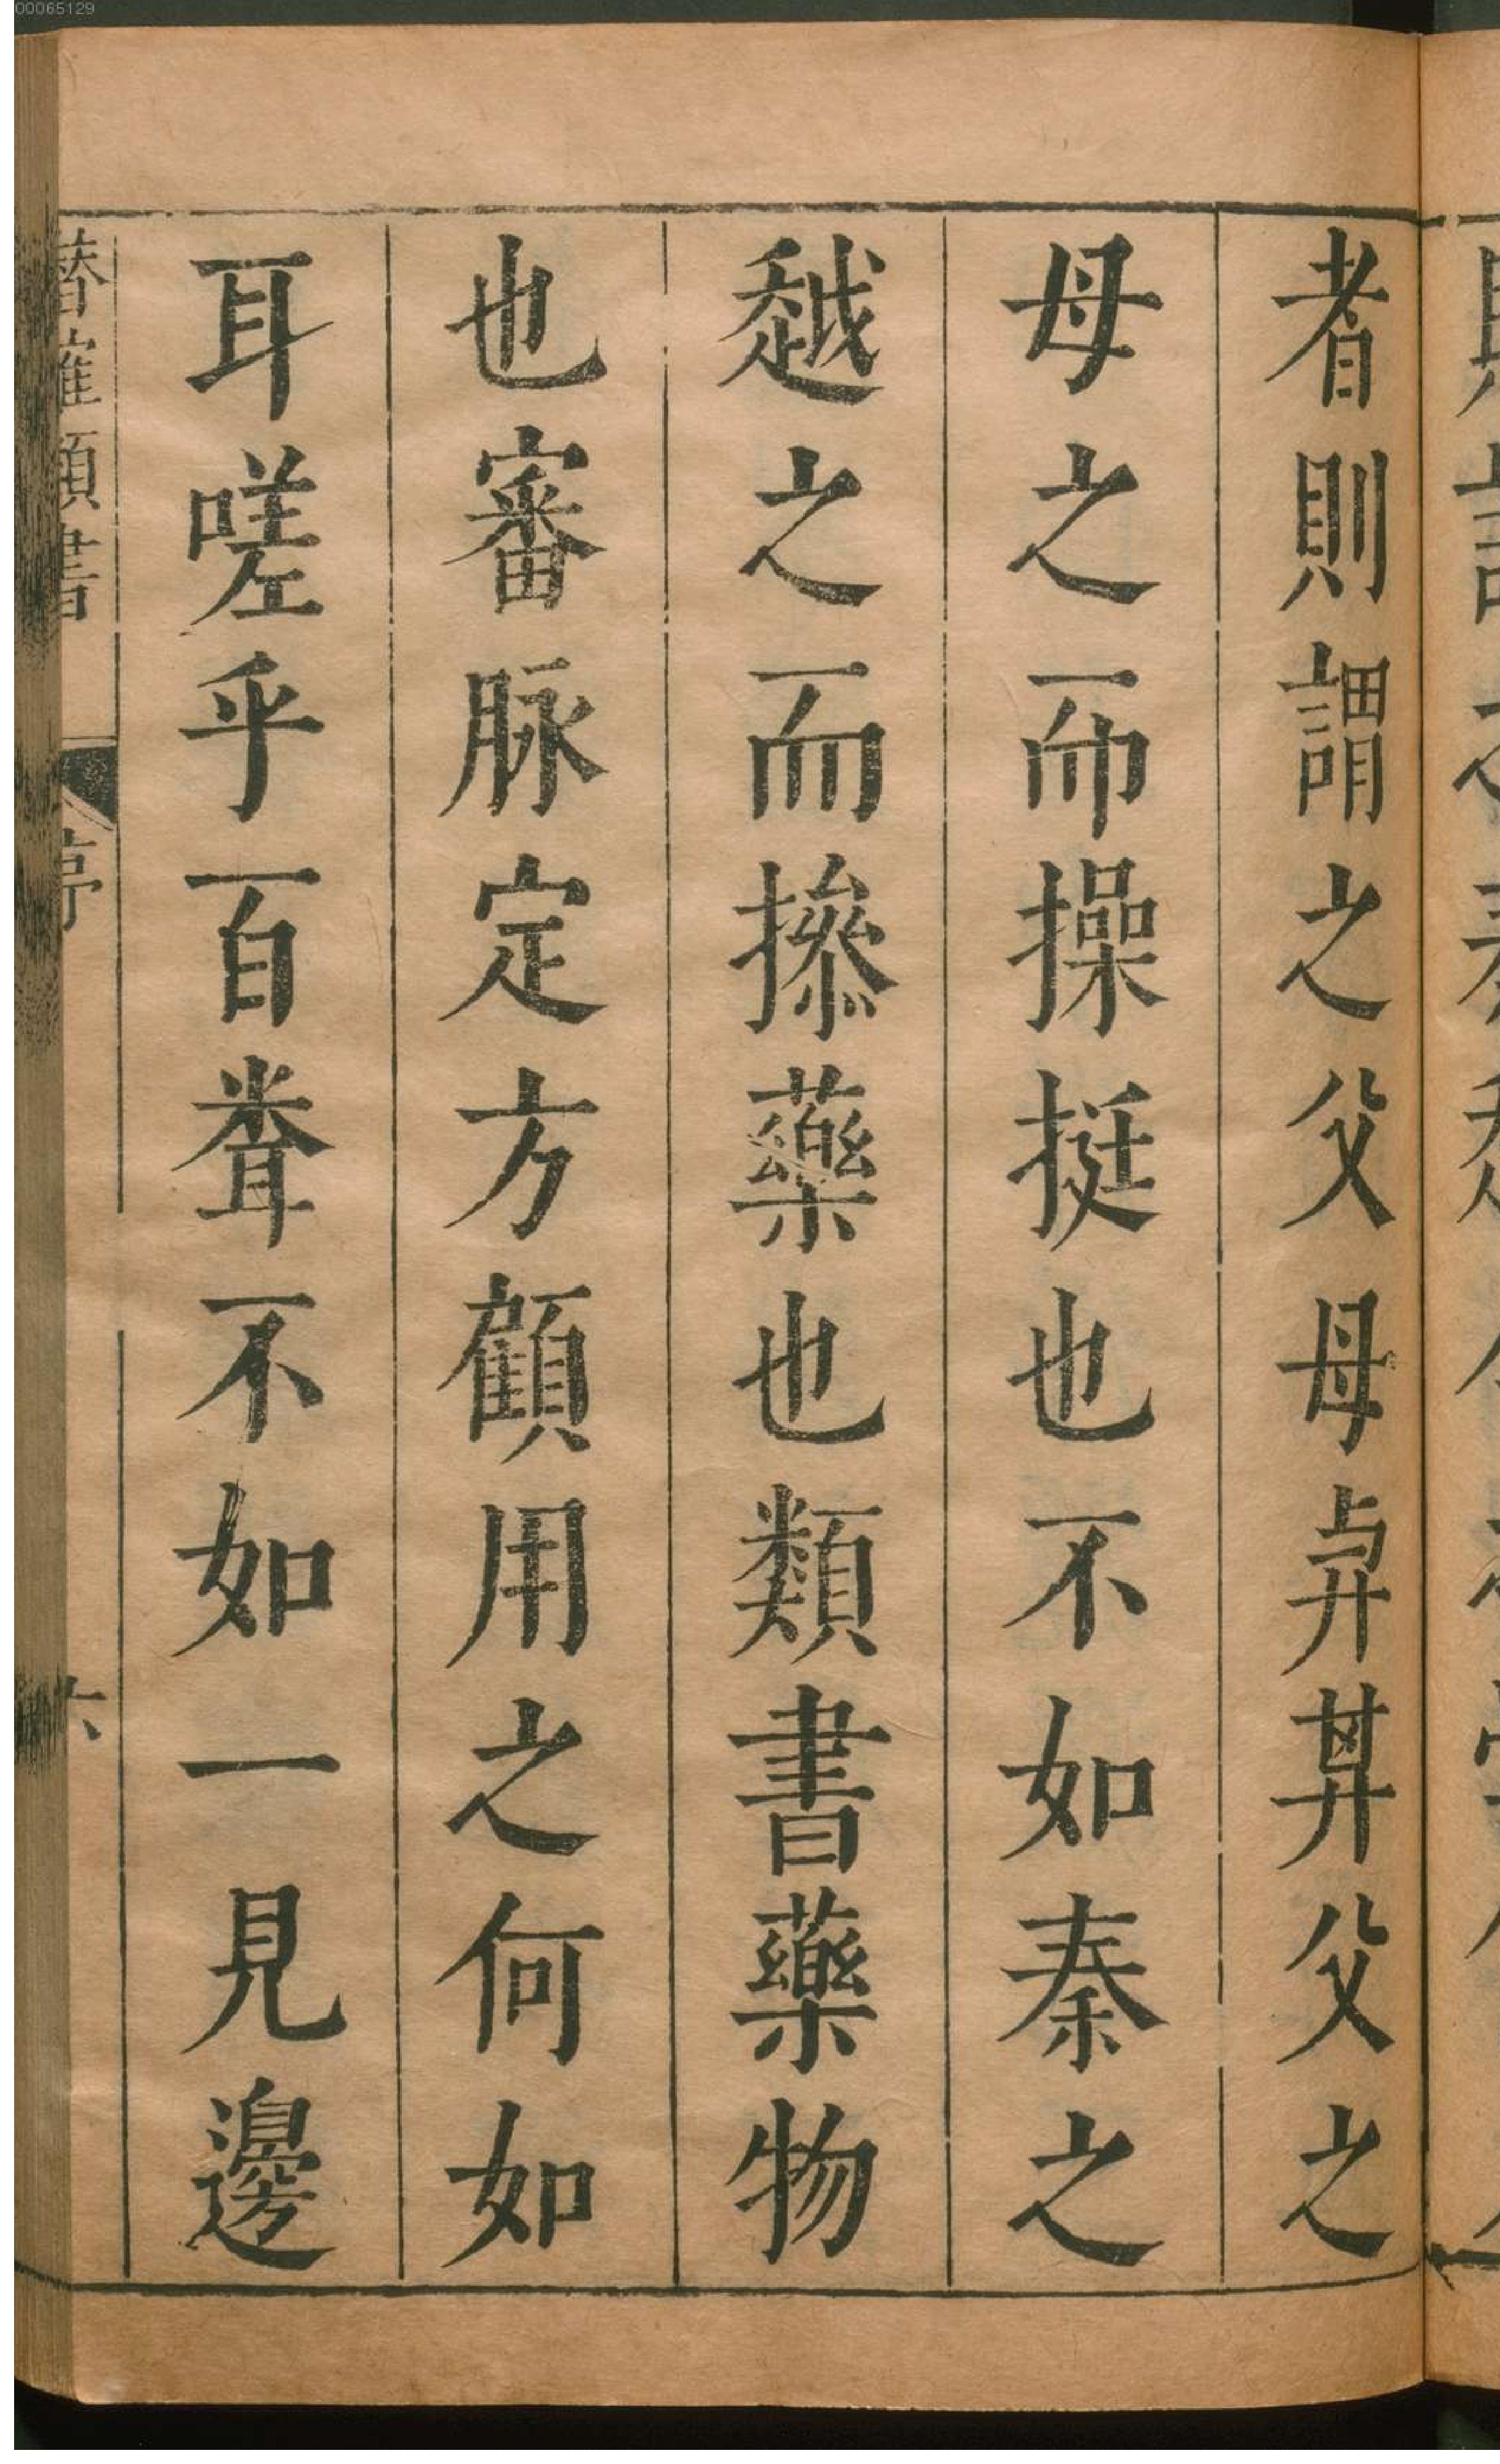 者則謂之父母與其父之
母之而操挺也不如秦之
越之而摻藥也類書藥物
也審脉定方顧用之何如
耳嗟乎百聋不如一見邊
潛確類書
序
六
00065129